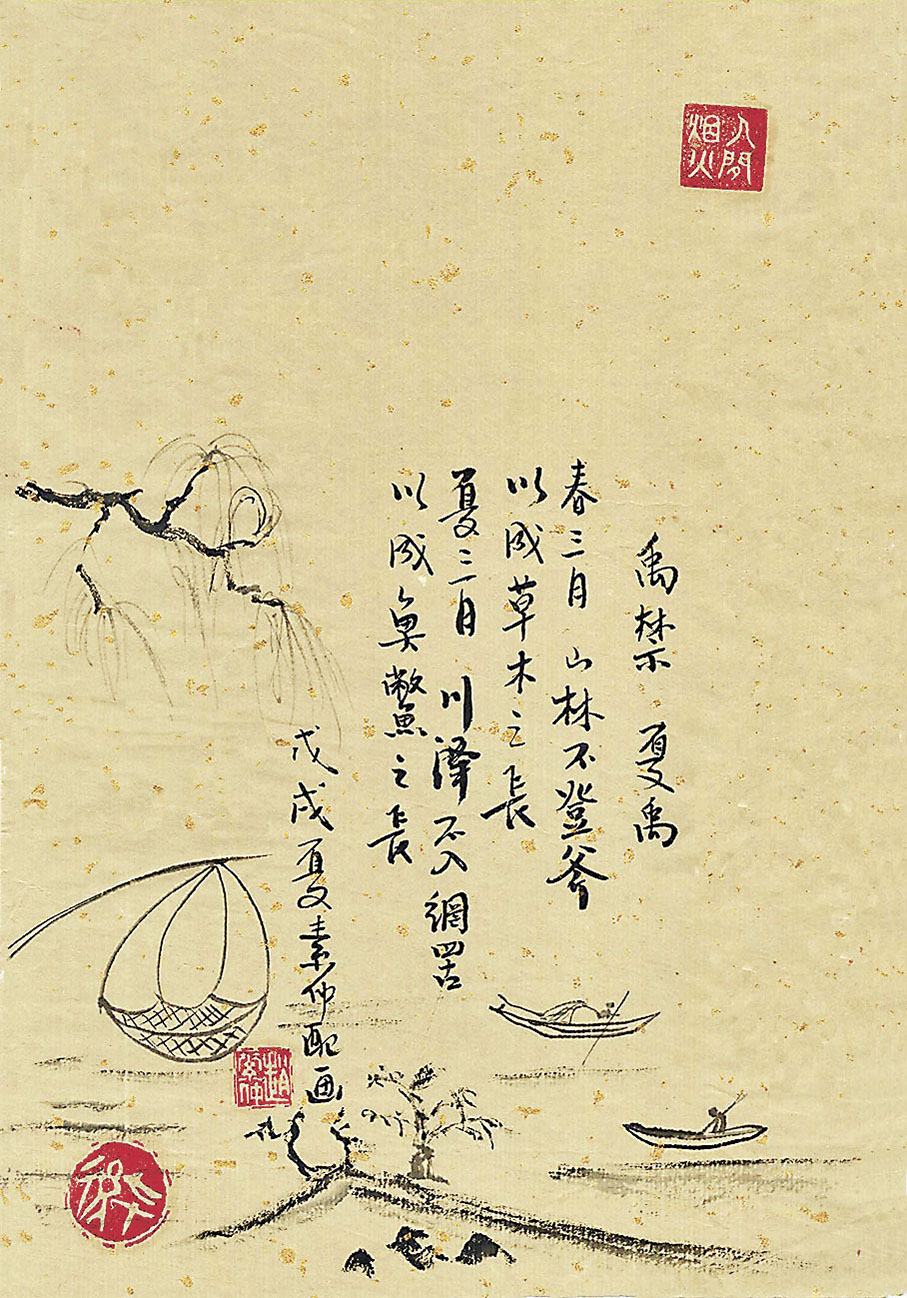 人間
烟火
禹禁 夏禹
春三月 山林不登斧
以成草木之長
夏三月 川澤不入網罟
以成魚鱉之長
戊戌夏素仲配画